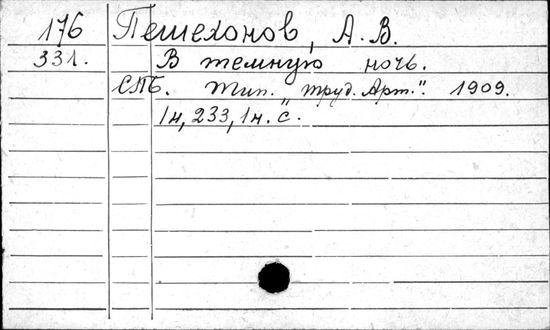 176 Пешехонов, А. В.
331. В темную ночь.
СПБ. Тип. "Труд. Арт.". 1909.
1н, 233, 1н. с.